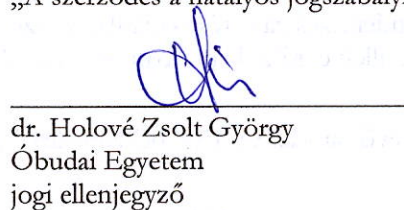 „A szerződés a hatályos
dr. Holové Zsolt György
Óbudai Egyetem
jogi ellenjegyző